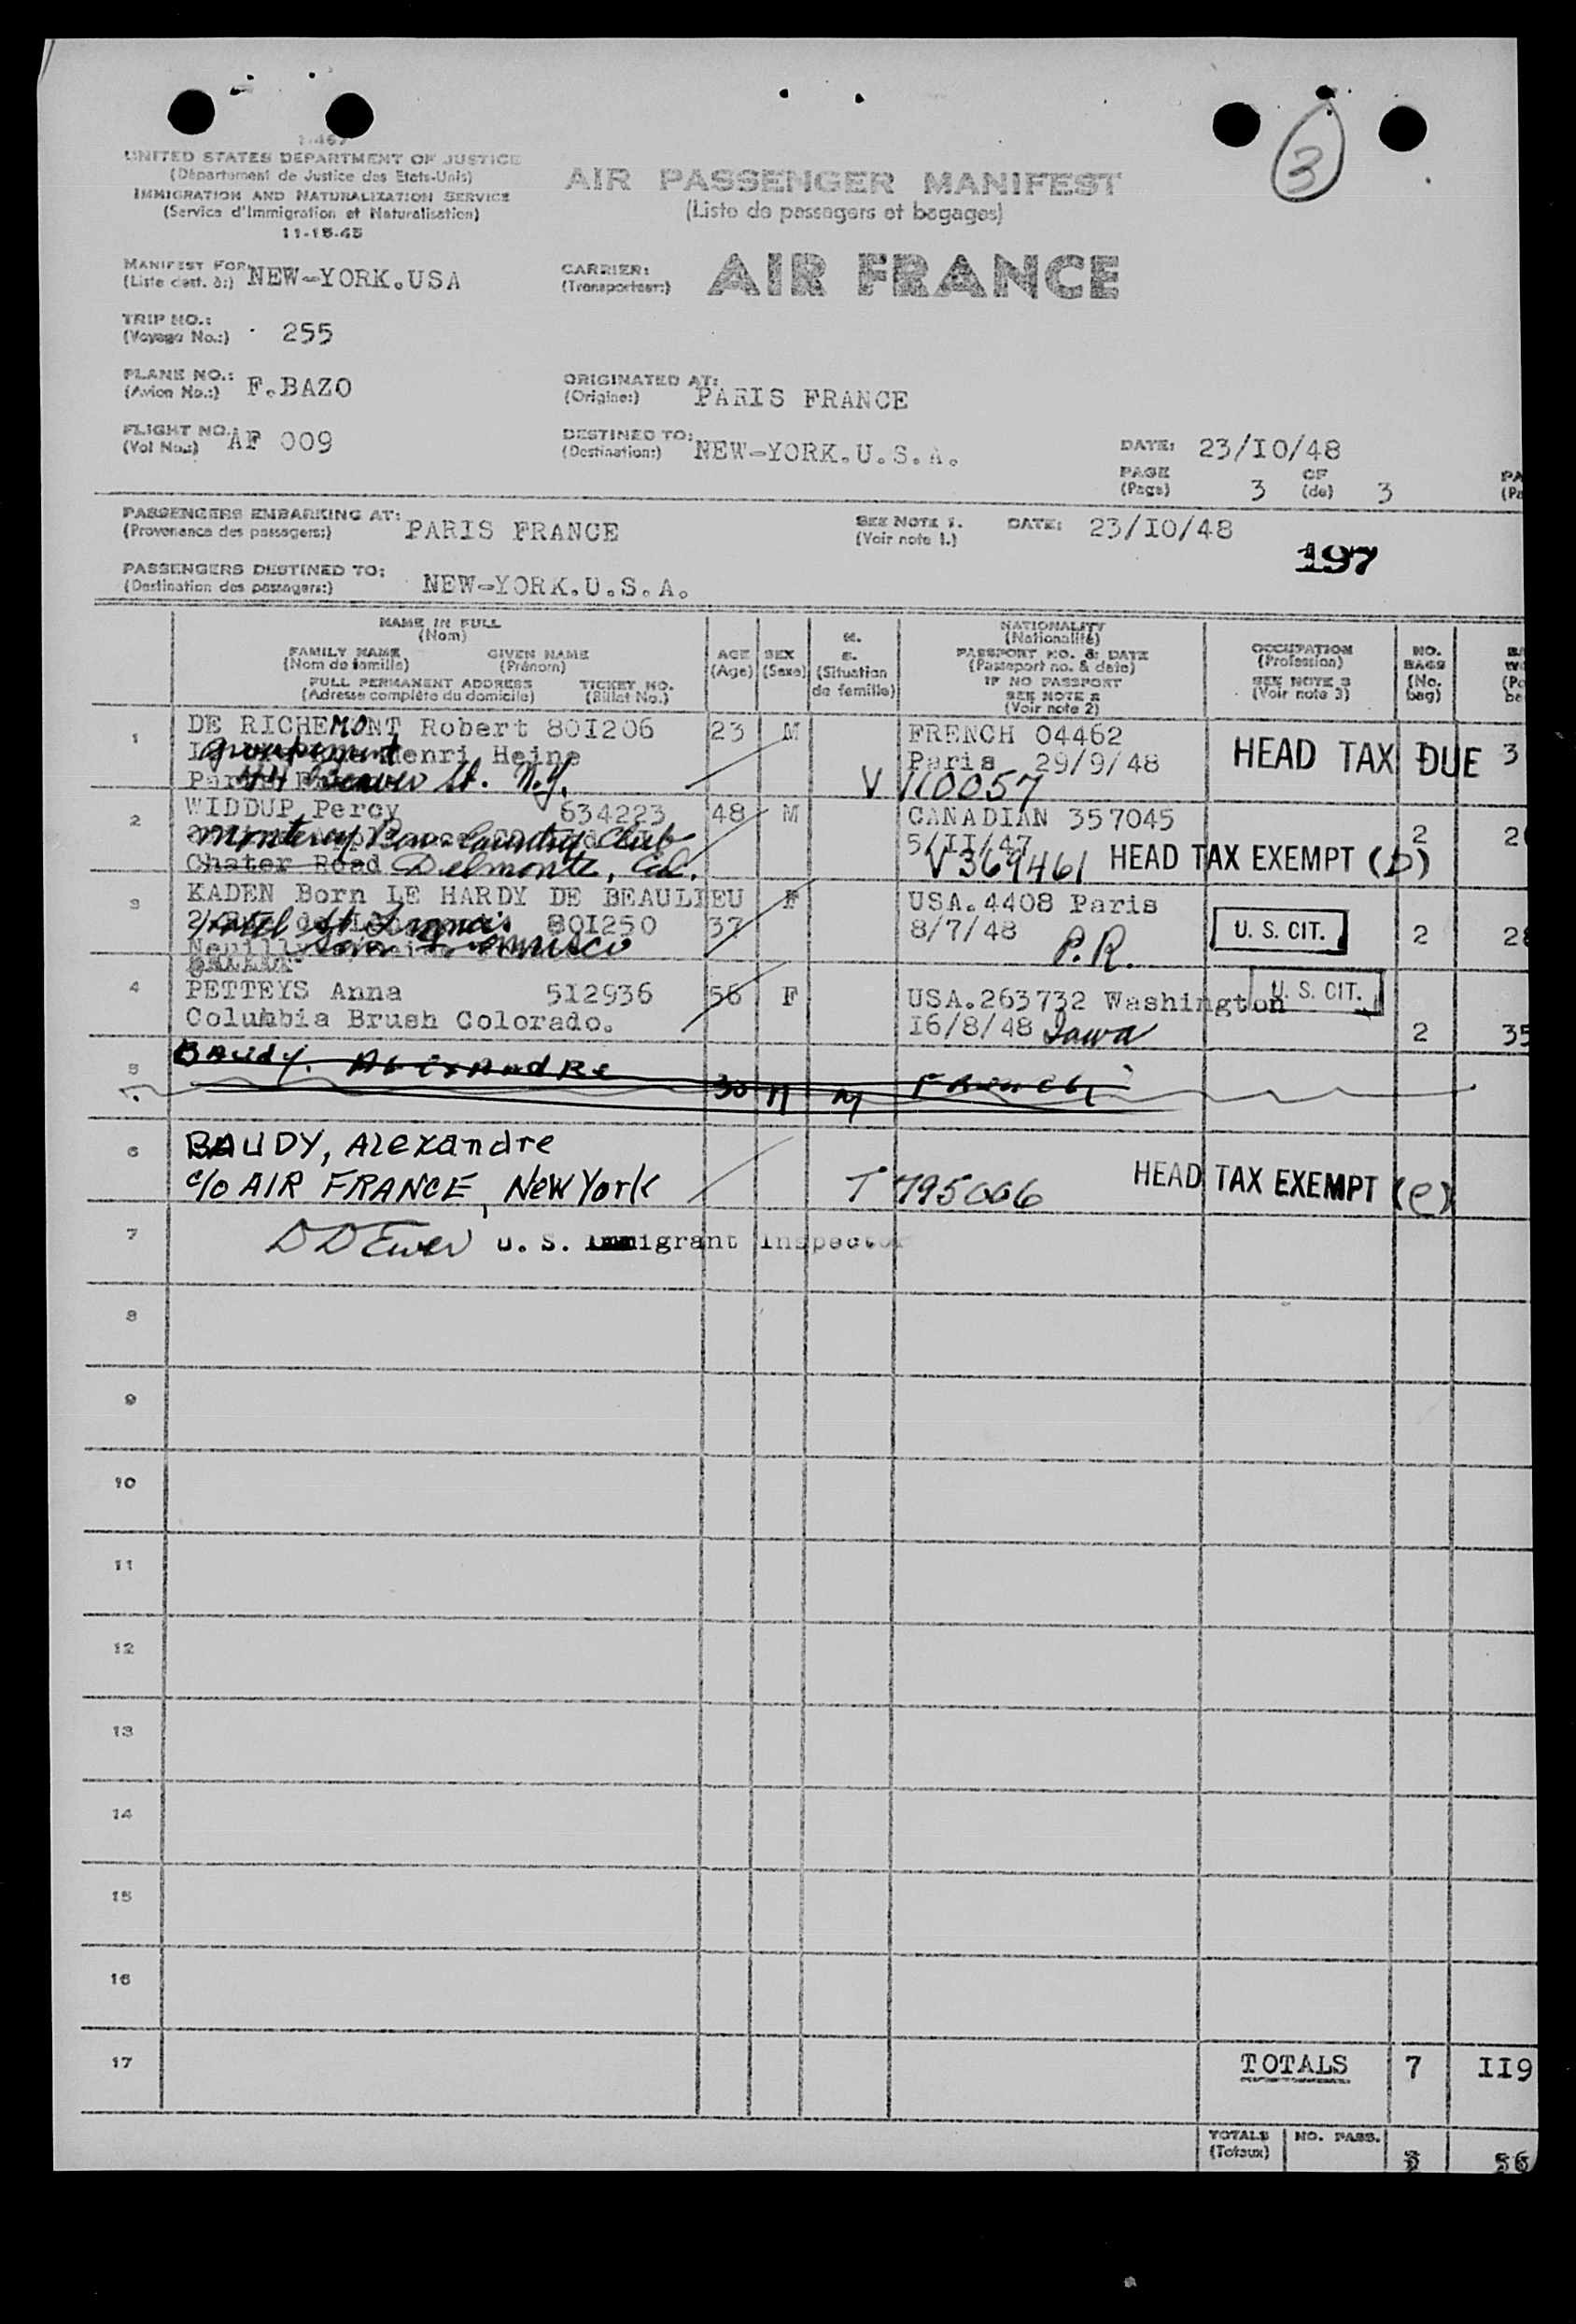 I-467
UNITED STATES DEPARTMENT OF JUSTICE
(Département de Justice des Etats-Unis)
IMMIGRATION AND NATURALIZATION SERVICE
(Service d'Immigration et Naturalisation)
11-15-45
AIR PASSENGER MANIFEST
(Liste de passagers et bagages)
3
MANIFEST FOR:
(Liste dest. à:) NEW-YORK.USA
CARRIER:
(Transporteur:)
AIR FRANCE
TRIP NO.:
(Voyage No.:) 255
PLANE NO.:
(Avion No.:) F.BAZO
ORIGINATED AT:
(Origine:) PARIS FRANCE
FLIGHT NO.:
(Vol No.:) AF 009
DESTINED TO:
(Destination:) NEW-YORK.U.S.A.
DATE: 23/IO/48
PAGE OF
(Page) 3 (de) 3
PA
(Pa
PASSENGERS EMBARKING AT:
(Provenance des passagers:) PARIS FRANCE
SEE NOTE 1.
(Voir note 1.)
DATE: 23/IO/48
197
PASSENGERS DESTINED TO:
(Destination des passagers:) NEW-YORK.U.S.A.
NAME IN FULL
(Nom)
FAMILY NAME GIVEN NAME
(Nom de famille) (Prénom)
FULL PERMANENT ADDRESS TICKET NO.
(Adresse complète du domicile) (Billet No.)
AGE
(Age)
SEX
(Sexe)
M.
S.
(Situation
de famille)
NATIONALITY
(Nationalité)
PASSPORT NO. & DATE
(Passeport no. & date)
IF NO PASSPORT
SEE NOTE 2
(Voir note 2)
OCCUPATION
(Profession)
SEE NOTE 3
(Voir note 3)
NO.
BAGS
(No.
bag)
1 DE RICHEMONT Robert 80I206 23 M FRENCH 04462
groupement Henri Heine Paris 29/9/48 HEAD TAX DUE 3
44 Beaver St. N.Y. V 110057
2 WIDDUP Percy 634223 48 M CANADIAN 357045
Monterey Country Club 5/II/47 2 2
Chater Road Delmonte, Cal. V 369461 HEAD TAX EXEMPT (D)
3 KADEN Born LE HARDY DE BEAULIEU F USA.4408 Paris
Hotel St Francis 80I250 37 8/7/48 U. S. CIT. 2 28
Neuilly San Francisco P.R.
4 PETTEYS Anna 5I2936 56 F USA.263732 Washington U. S. CIT.
Columbia Brush Colorado. I6/8/48 Iowa 2 35
5 Baudy. Alexandre 30 M French
6 BAUDY, Alexandre
c/o AIR FRANCE, New York T 795006 HEAD TAX EXEMPT (e)
7 U. S. Immigrant Inspector
8
9
10
11
12
13
14
15
16
17 TOTALS 7 II9
TOTALS NO. PASS.
(Totaux)
56